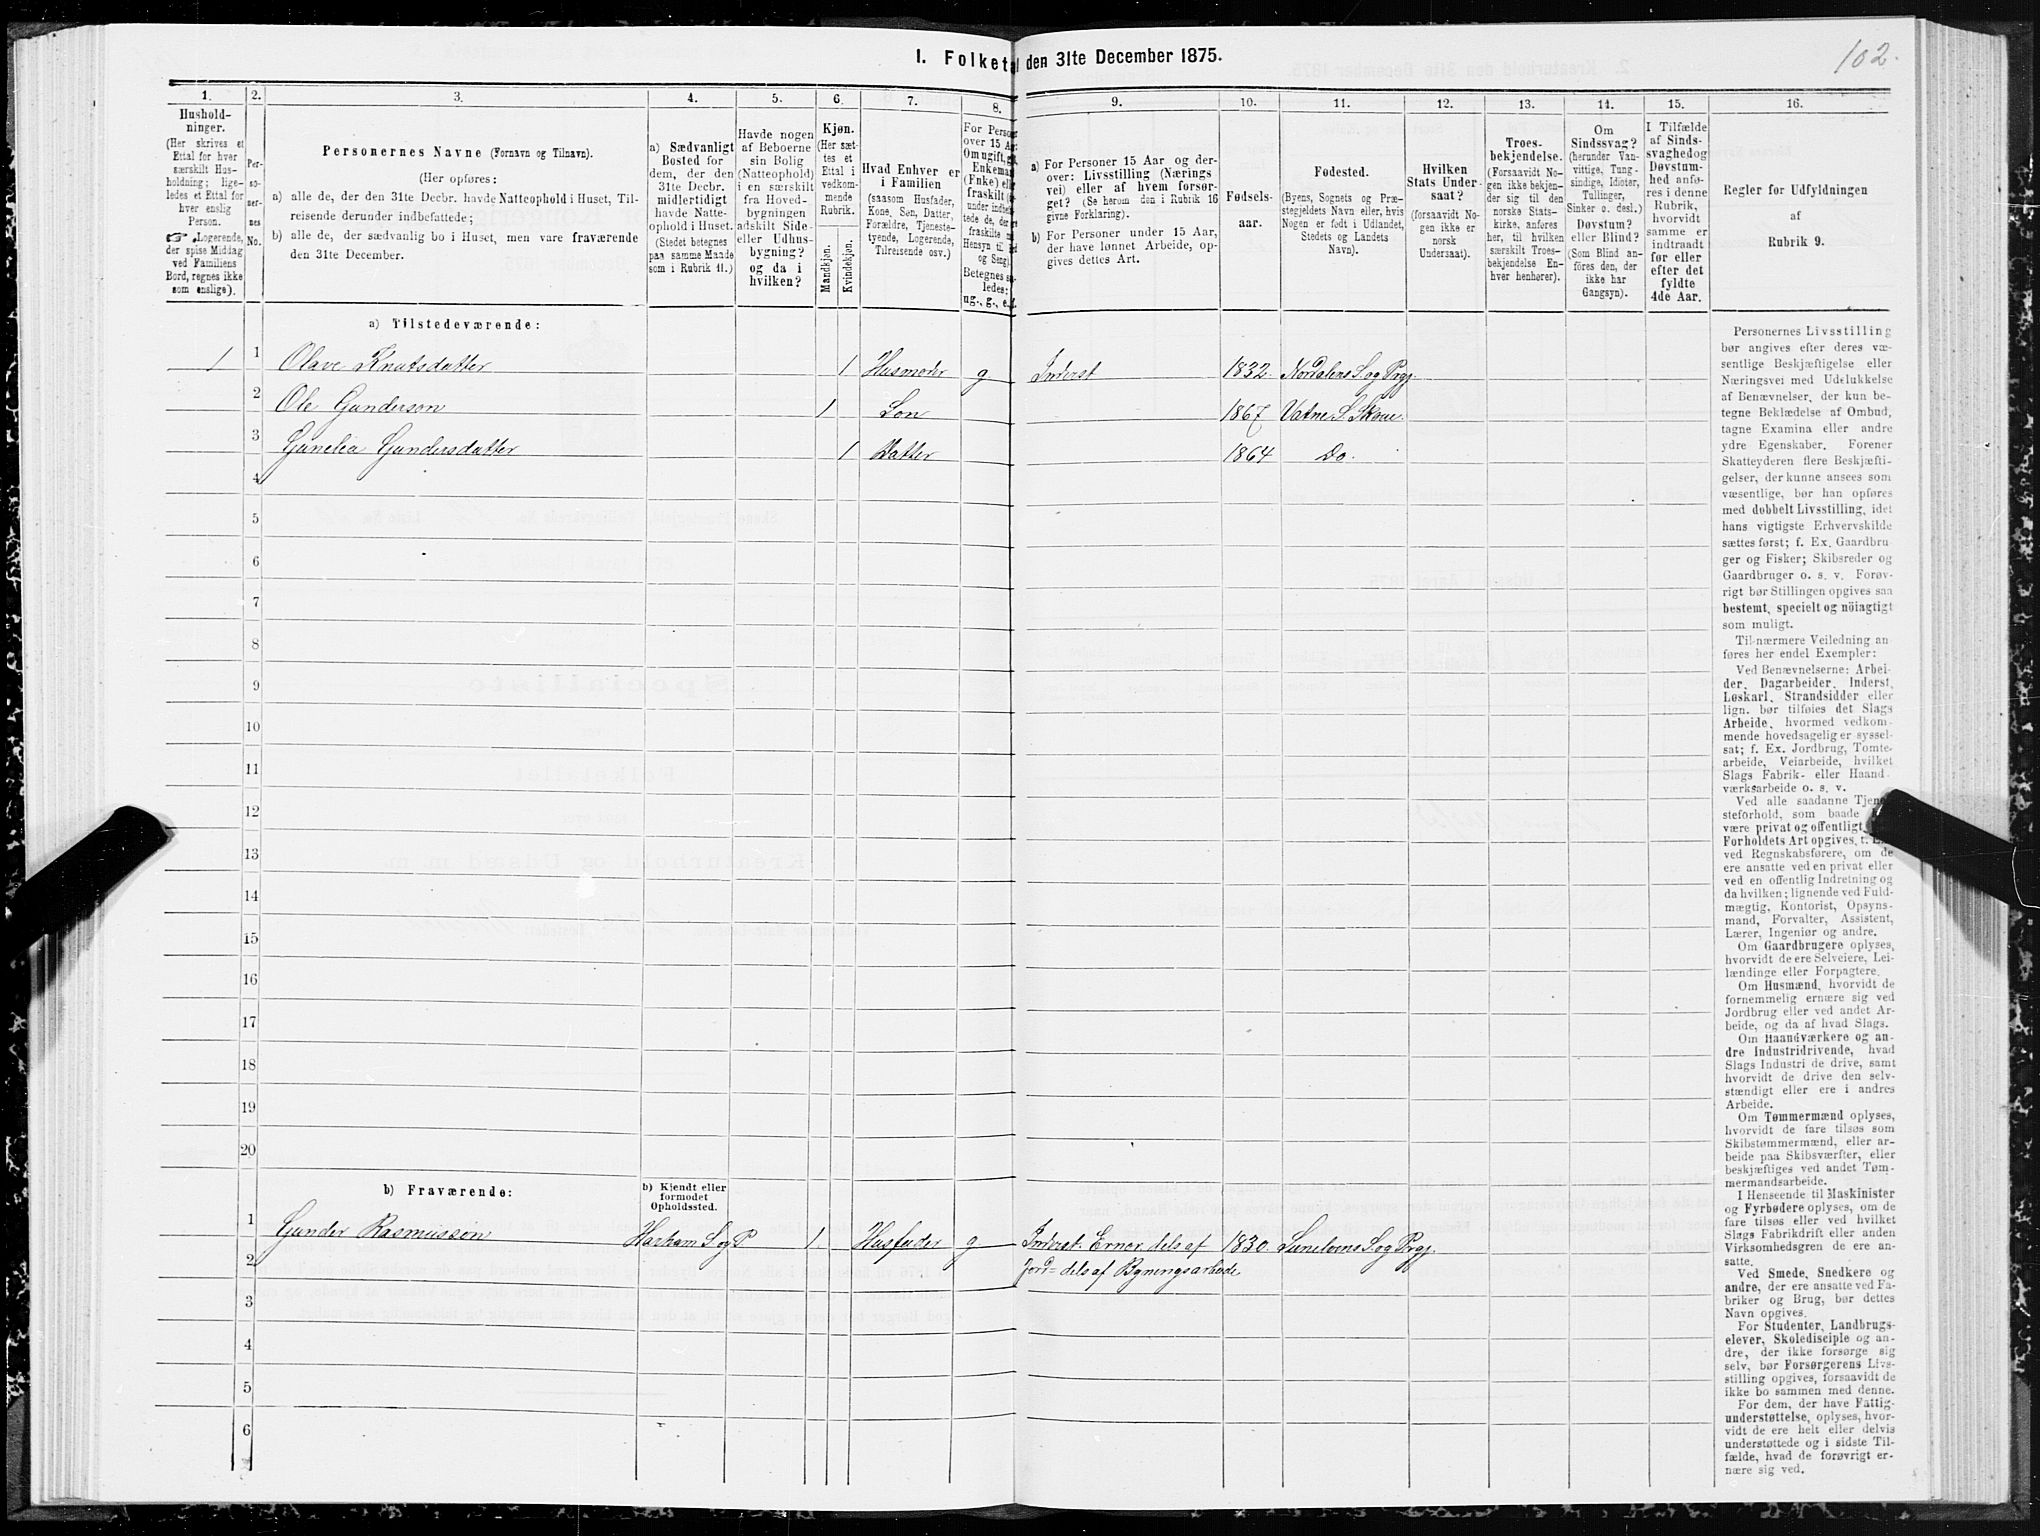 I. Folketal den 31te December 1875.
102.
1.
Hushold-
ninger.
(Her skrives et
Ettal for hver
særskilt Hus-
holdning; lige-
ledes et Ettal for
hver enslig
Person.
Logerende,
der spise Middag
ved Familiens
Bord, regnes ikke
som enslige).
2.
Per-
so-
ner-
nes
No.
3.
Personernes Navne (Fornavn og Tilnavn).
(Her opføres:
a) alle de, der den 31te Decbr. havde Natteophold i Huset, Til-
reisende derunder indbefattede;
b) alle de, der sædvanlig bo i Huset, men vare fraværende
den 31te December.
4.
a) Sædvanligt
Bosted for
dem, der den
31te Decbr.
midlertidigt
havde Natte-
ophold i Huset.
(Stedet betegnes
paa samme Maade
som i Rubrik 11.)
5.
Havde nogen
af Beboerne
sin Bolig
(Natteophold)
i en særskilt
fra Hoved-
bygningen
adskilt Side-
eller Udhus-
bygning?
og da i
hvilken?
6.
Kjøn.
(Her sæt-
tes et
Ettal i
vedkom-
mende
Rubrik.
Mandkjøn.
Kvindekjøn.
7.
Hvad Enhver er
i Familien
(saasom Husfader,
Kone, Søn, Datter,
Forældre, Tjeneste-
tyende, Logerende,
Tilreisende osv.)
8.
For Person
over 15 Aar
Om ugift, g
Enkemar
(Fnke) ell
fraskilt
under indbe
tede de, der
fraskilte
Hensyn til
og Seng)
Betegnes s
ledes:
ug., g., e., f.
9.
a) For Personer 15 Aar og der-
over: Livsstilling (Nærings
vei) eller af hvem forsør-
get? (Se herom den i Rubrik 16
givne Forklaring).
b) For Personer under 15 Aar,
der have lønnet Arbeide, op-
gives dettes Art.
10.
Fødsels-
aar.
11.
Fødested.
(Byens, Sognets og Præ-
stegjeldets Navn eller, hvis
Nogen er født i Udlandet,
Stedets og Landets
Navn).
12.
Hvilken
Stats Under-
saat?
(forsaavidt No-
gen ikke er
norsk
Undersaat).
13.
Troes-
bekjendelse.
(Forsaavidt No-
gen ikke bekjen-
der sig til den
norske Stats-
kirke, anføres
her, til hvilken
særskilt Troes-
bekjendelse En-
hver henhører).
14.
Om
Sindssvag?
(herunder Van-
vittige, Tung-
sindige, Idioter,
Tullinger,
Sinker o. desl.)
Døvstum?
eller Blind?
(Som Blind an-
føres den, der
ikke har
Gangsyn).
15.
I Tilfælde
af Sinds-
svaghed og
Døvstum-
hed anfø-
res i denne
Rubrik,
hvorvidt
samme er
indtraadt
før eller
efter det
fyldte
4de Aar.
16.
Regler før Udfyldningen
af
Rubrik 9.
a) Tilstedeværende:
1 1 Olave Knutsdatter 1 Husmoder g Inderst 1832. Nordalens S. og Prgj.
2 Ole Gunderson 1 Søn 1867 Vatne S. Skoue.
3 Gunelia Gundersdatter 1 Datter 1864 Do.
4
5
6
7
8
9
10
11
12
13
14
15
16
17
18
19
20
b) Fraværende:
b) Kjendt eller
formodet
Opholdssted.
1 Gunder Rasmusson Harham S. og P. 1. Husfader g. Inderst. Erner dels af 1830. Sunelvens S. og Prgj.
2 Jord= dels af Bygningsarbeide
3
4
5
6
Personernes Livsstilling
bør angives efter deres væ-
sentlige Beskjæftigelse eller
Næringsvei med Udelukkelse
af Benævnelser, der kun be-
tegne Beklædelse af Ombud,
tagne Examina eller andre
ydre Egenskaber. Forener
Skatteyderen flere Beskjæfti-
gelser, der kunne ansees som
væsentlige, bør han opføres
med dobbelt Livsstilling, idet
hans vigtigste Erhvervskilde
sættes først; f. Ex. Gaardbru-
ger og Fisker; Skibsreder og
Gaardbruger o. s. v. Forøv-
rigt bør Stillingen opgives saa
bestemt, specielt og nöiagtigt
som muligt.
Til nærmere Veiledning an-
føres her endel Exempler:
Ved Benævnelserne: Arbei-
der, Dagarbeider, Inderst,
Løskarl, Strandsidder eller
lign. bør tilføies det Slags
Arbeide, hvormed vedkom-
mende hovedsagelig er syssel-
sat; f. Ex. Jordbrug, Tomte-
arbeide, Veiarbeide, hvilket
Slags Fabrik- eller Haand-
værksarbeide o. s. v.
Ved alle saadanne Tjene-
steforhold, som baade
være privat og offentligt,
Forholdets Art opgives, t.
ved Regnskabsførere, om de
ere ansatte ved en privat eller
ved en offentlig Indretning og
da hvilken; lignende ved Fuld-
mægtig, Kontorist, Opsyns-
mand, Forvalter, Assistent,
Lærer, Ingeniør og andre.
Om Gaardbrugere oplyses,
hvorvidt de ere Selveiere, Lei-
lændinge eller Forpagtere.
Om Husmænd, hvorvidt de
fornemmelig ernære sig ved
Jordbrug eller ved andet Ar-
beide, og da af hvad Slags.
Om Haandværkere og an-
dre Industridrivende, hvad
Slags Industri de drive, samt
hvorvidt de drive den selv-
stændigt eller ere i andres
Arbeide.
Om Tømmermænd oplyses,
hvorvidt de fare tilsøs som
Skibstømmermænd, eller ar-
beide paa Skibsværfter, eller
beskjæftiges ved andet Tøm-
mermandsarbeide.
I Henseende til Maskinister
og Fyrbødere oplyses, om de
fare tilsøs eller ved hvilket
Slags Fabrikdrift eller anden
Virksomhedsgren de ere an-
satte.
Ved Smede, Snedkere og
andre, der ere ansatte ved Fa-
briker og Brug, bør dettes
Navn opgives.
For Studenter, Landbrugs-
elever, Skoledisciple og an-
dre, der ikke forsørge sig
selv, bør Forsørgerens Livs-
stilling opgives, forsaavidt de
ikke bo sammen med denne.
For dem, der have Fattig-
understøttelse, oplyses, hvor-
vidt de ere helt eller delvis
understøttede og i sidste Til-
fælde, hvad de forøvrigt er-
nære sig ved.